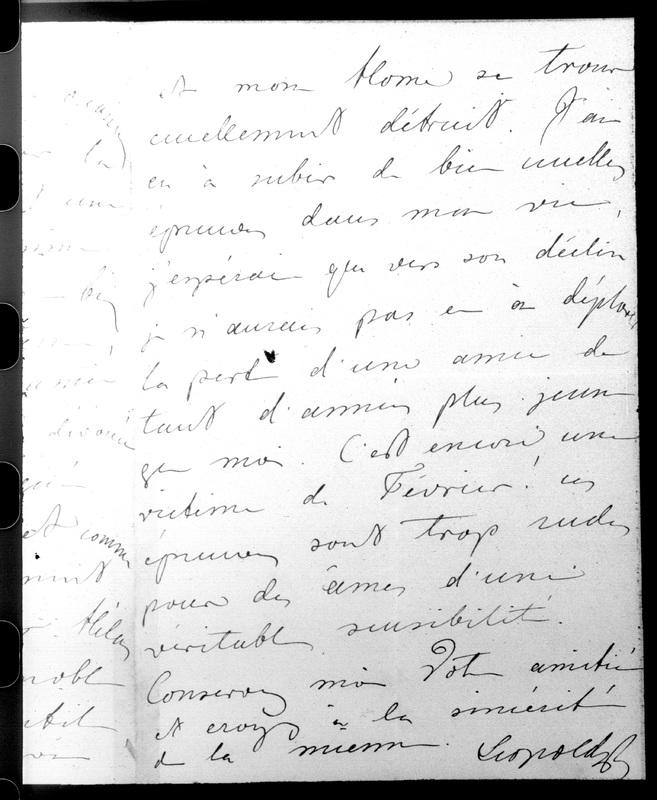 et mon Home se trouve
cruellement détruit. J'ai
eu à subir de bien cruelles
épreuves dans ma vie,
j'espérais que vers son déclin
je n'aurais pas eu à déplorer
la perte d'une amie de
tant d'années plus jeune
que moi. C'est encore une
victime de Février! ces
épreuves sont trop rudes
pour des âmes d'une
véritable sensibilité.
Conservez moi Votre amitié
et croyez à la sincérité
de la mienne. Leopold
la
une
bien
amie
dévoué
et comme
Hélas
noble